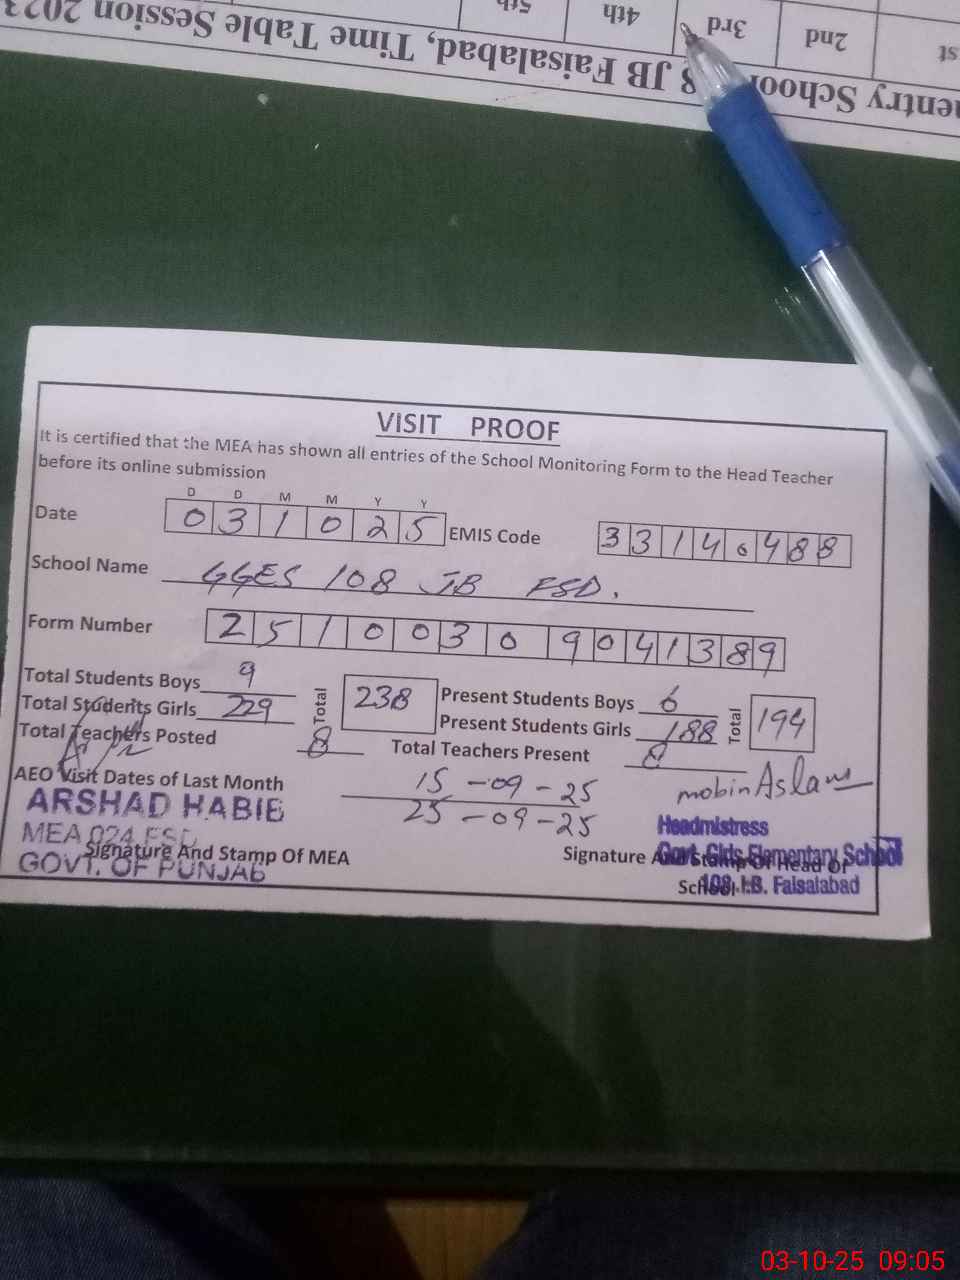 2nd 3rd 4th 5th
entry School 108 JB Faisalabad, Time Table Session 2023
VISIT PROOF
It is certified that the MEA has shown all entries of the School Monitoring Form to the Head Teacher
before its online submission
D D M M Y Y
Date 0 3 1 0 2 5 EMIS Code 3 3 1 4 0 4 8 8
School Name GGES 108 JB FSD.
Form Number 2 5 1 0 0 3 0 9 0 4 1 3 8 9
Total Students Boys 9 Total 238 Present Students Boys 6 Total 194
Total Students Girls 229 Present Students Girls 188
Total Teachers Posted 8 Total Teachers Present 8
AEO Visit Dates of Last Month 15-09-25
25-09-25
mobin Aslam
ARSHAD HABIB
MEA 024 FSD
GOVT. OF PUNJAB
Signature And Stamp Of MEA
Signature And Stamp Of Head Of
School
Headmistress
Govt. Girls Elementary School
108 J.B. Faisalabad
03-10-25 09:05